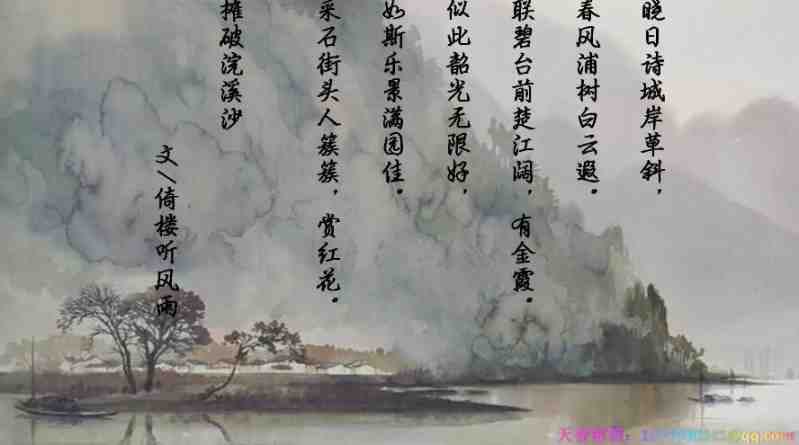 晚日诗城岸草斜，
春风浦树白云遐。
联碧台前楚江阔，有金霞。
似此韶光无限好，
如斯乐景满园佳。
采石街头人簇簇，赏红花。
摊破浣溪沙
文\倚楼听风雨